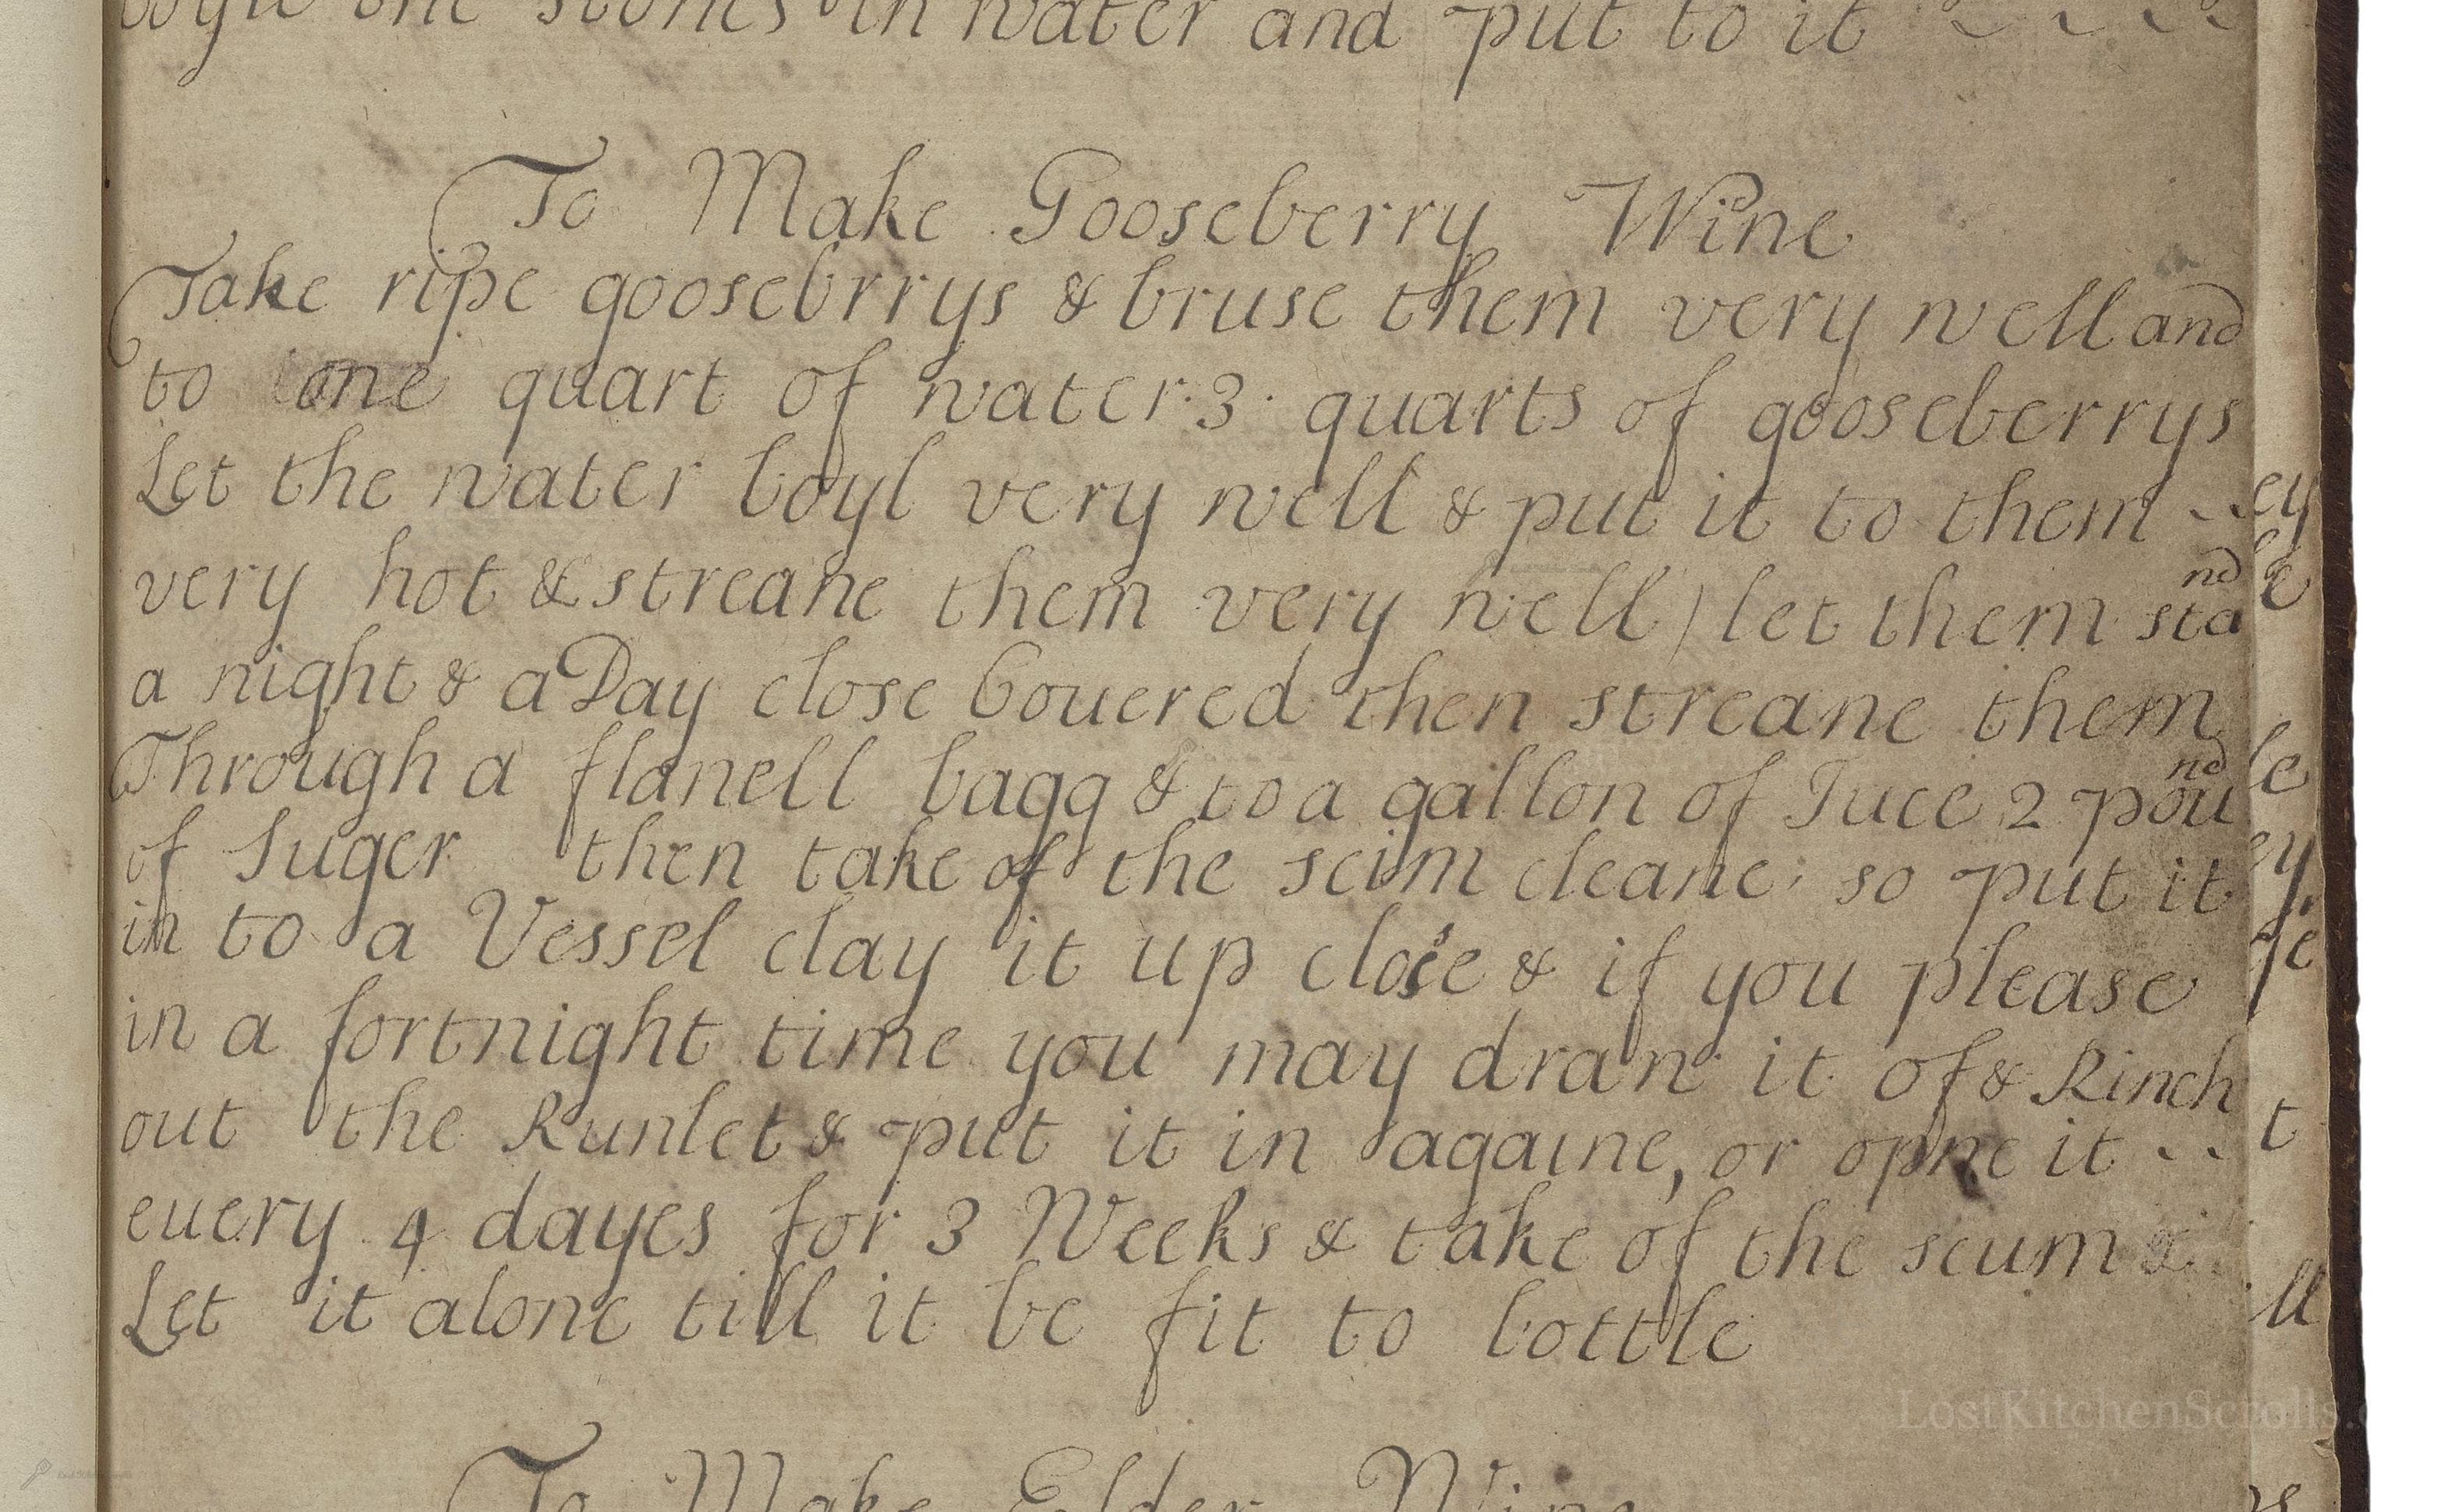 boyle the stones in water and put to it
To Make Gooseberry Wine
Take ripe goosebrrys & bruse them very well and
to one quart of water 3 quarts of gooseberrys
Let the water boyl very well & put it to them
very hot & streane them very well / let them stand
a night & a Day close Couered then streane them
Through a flanell bagg & to a gallon of Juce 2 pound
of Suger then take of the scim cleane; so put it
in to a Vessel clay it up close & if you please
in a fortnight time you may draw it of & Rinch
out the Runlet & put it in againe, or opne it
euery 4 dayes for 3 Weeks & take of the scum &
Let it alone till it be fit to bottle
To Make Elder Wine
ey
le
ey
t
ll
LostKitchenScrolls